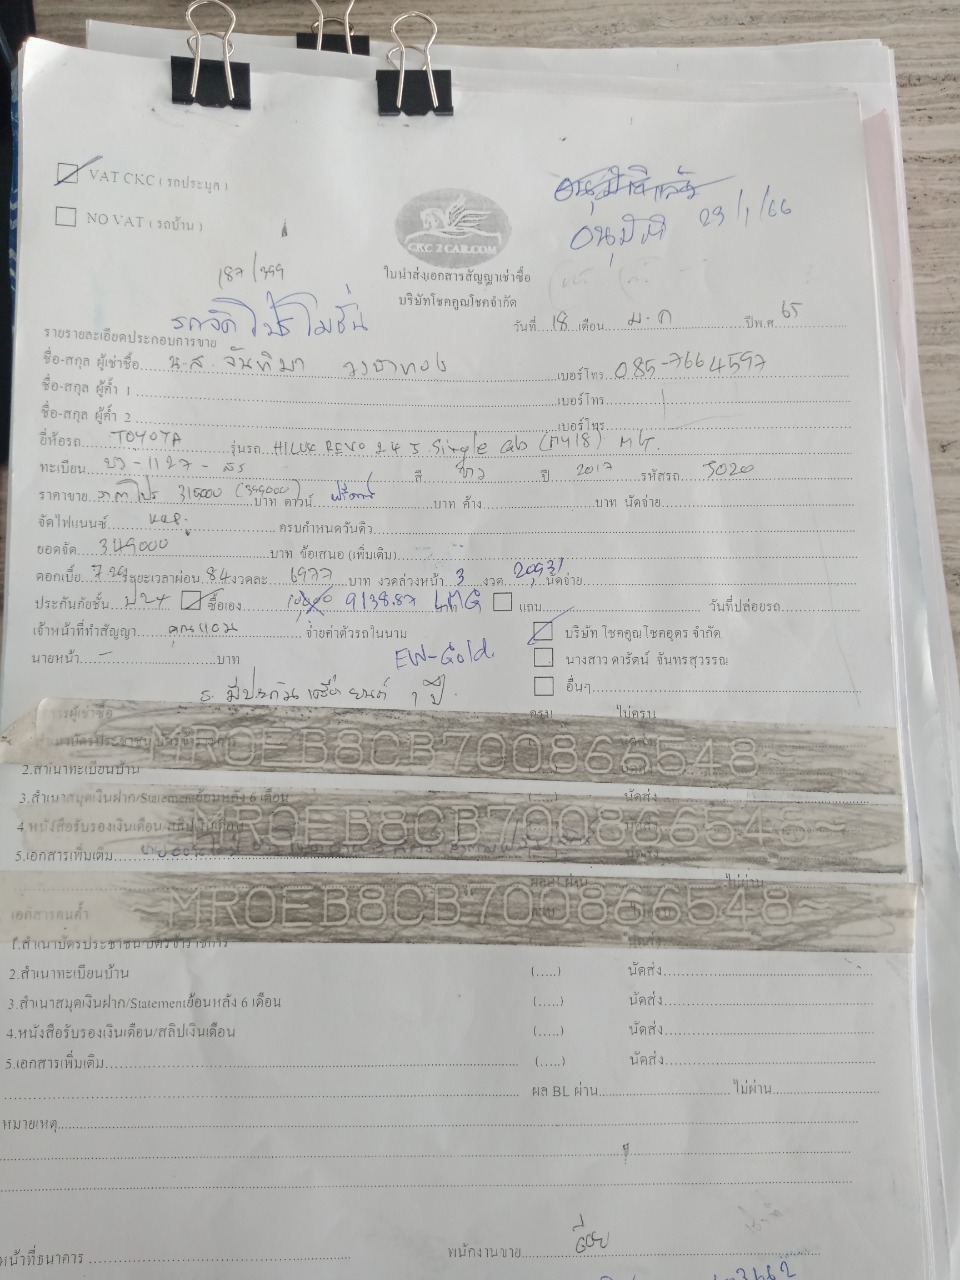 VAT CKC ( รถประมูล )
NO VAT ( รถบ้าน )
อนุมัติแล้ว
อนุมัติ 23/1/66
CKC 2 CAR.COM
187/399
ใบนำส่งเอกสารสัญญาเช่าซื้อ
บริษัทโชคคูณโชคจำกัด
รถจัดโปรโมชั่น
วันที่ 18 เดือน ม.ค ปีพ.ศ. 65
รายรายละเอียดประกอบการขาย
ชื่อ-สกุล ผู้เช่าซื้อ น.ส. จันทิมา วงษาทอง เบอร์โทร. 085-7664597
ชื่อ-สกุล ผู้ค้ำ 1 เบอร์โทร
ชื่อ-สกุล ผู้ค้ำ 2 เบอร์โทร
ยี่ห้อรถ TOYOTA รุ่นรถ HILUX REVO 2.4 J Single Cab (MY18) MT.
ทะเบียน บว-1127-สร สี ขาว ปี 2017 รหัสรถ 5020
ราคาขาย 315000 (399000) บาท ดาวน์ ฟรีดาวน์ บาท ค้าง บาท นัดจ่าย
จัดไฟแนนซ์ ครบกำหนดวันคิว
ยอดจัด 349000 บาท ข้อเสนอ (เพิ่มเติม)
ดอกเบี้ย 7.29 ระยะเวลาผ่อน 84 งวดละ 6977 บาท งวดล่วงหน้า 3 งวด 20,931 นัดจ่าย
ประกันภัยชั้น ป2+ ซื้อเอง 9138.87 LMG แถม วันที่ปล่อยรถ
เจ้าหน้าที่ทำสัญญา คุณแอม จ่ายค่าตัวรถในนาม บริษัท โชคคูณโชคอุดร จำกัด
นายหน้า - บาท EW-Gold. นางสาว ดารัตน์ จันทรสุวรรณ
อื่นๆ
ร. มีประกันเครื่องยนต์ 1 ปี.
เอกสารผู้เช่าซื้อ ครบ ไม่ครบ
MR0EB8CB700866548~
2.สำเนาทะเบียนบ้าน
3.สำเนาสมุดเงินฝาก/Statementย้อนหลัง 6 เดือน นัดส่ง
MR0EB8CB700866548~
4.หนังสือรับรองเงินเดือน/สลิปเงินเดือน
5.เอกสารเพิ่มเติม
ผลBL ผ่าน ไม่ผ่าน
MR0EB8CB700866548~
เอกสารคนค้ำ
1.สำเนาบัตรประชาชน/บัตรข้าราชการ นัดส่ง
2.สำเนาทะเบียนบ้าน (.....) นัดส่ง
3.สำเนาสมุดเงินฝาก/Statementย้อนหลัง 6 เดือน (.....) นัดส่ง
4.หนังสือรับรองเงินเดือน/สลิปเงินเดือน (.....) นัดส่ง
5.เอกสารเพิ่มเติม (.....) นัดส่ง
ผล BL ผ่าน ไม่ผ่าน
หมายเหตุ
หน้าที่ธนาคาร พนักงานขาย